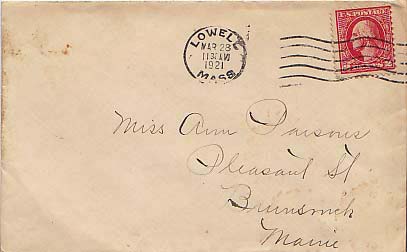 LOWELL
MAR 28
11 30 AM
1921
MASS
U.S. POSTAGE
Miss Ann Parsons
Pleasant St
Brunswick
Maine